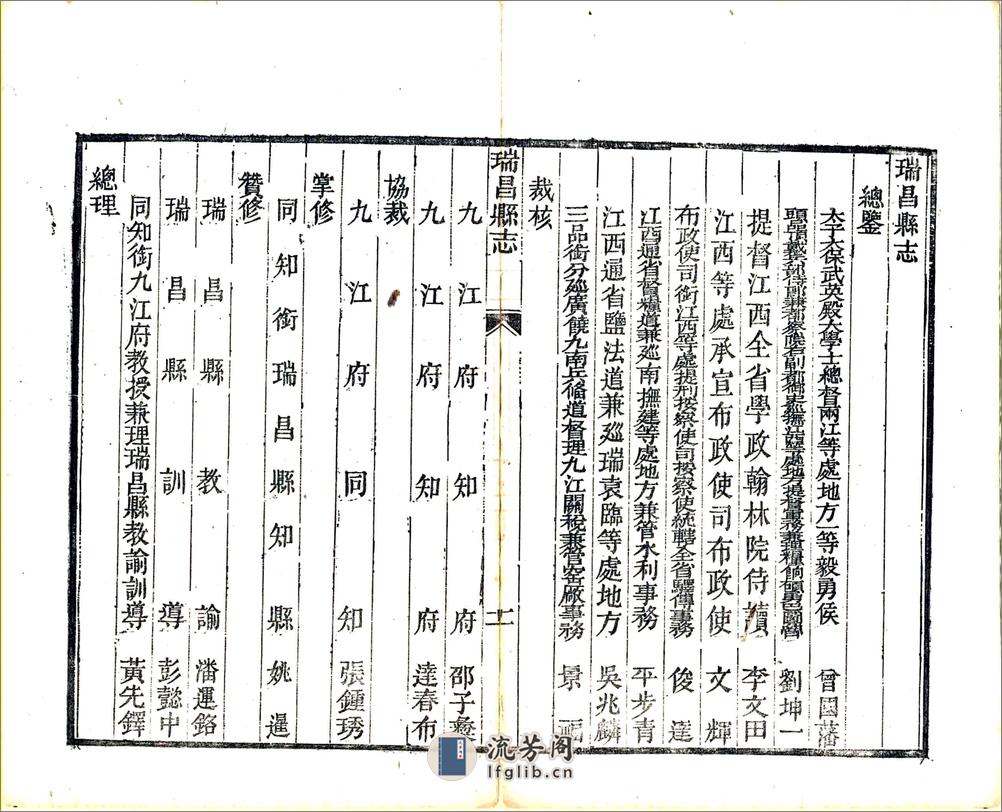 瑞昌縣志
總鑒
太子太保武英殿大學士總督兩江等處地方一等毅勇侯 曾國藩
頭品頂戴兵部侍郎兼都察院右副都御史巡撫江西等處地方提督軍務兼理糧餉 劉坤一
提督江西全省學政翰林院侍讀 李文田
江西等處承宣布政使司布政使 文輝
布政使司銜江西等處提刑按察使司按察使統轄全省驛傳事務 俊達
江西通省督糧道兼巡南撫建等處地方兼管水利事務 平步青
江西通省鹽法道兼巡瑞袁臨等處地方 吳兆麟
三品銜分巡廣饒九南兵備道督理九江關稅兼管窑廠事務 景福
裁核
瑞昌縣志
十一
九江府知府 邵子彝
九江府知府 達春布
協裁
九江府同知 張鍾琇
掌修
同知銜瑞昌縣知縣 姚暹
贊修
瑞昌縣教諭 潘運銘
瑞昌縣訓導 彭懿中
同知銜九江府教授兼理瑞昌縣教諭訓導 黃先鐸
總理
流芳阁
lfglib.cn